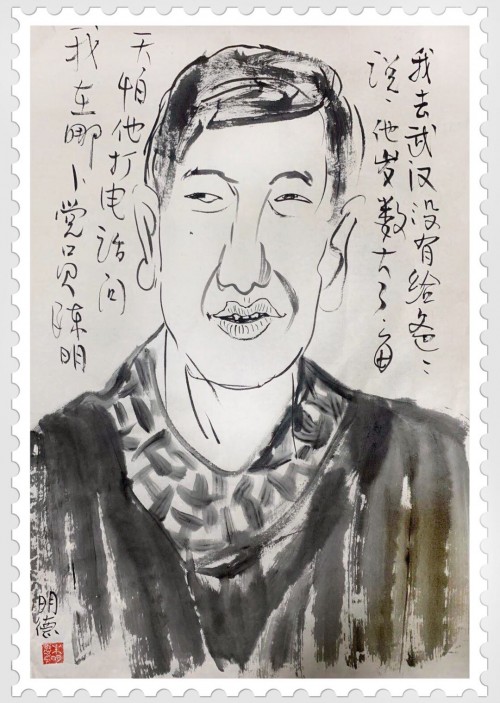 我去武汉没有给爸ミ
说、他岁数大了、每
天怕他打电话问
我在哪卜党员陈明
明德